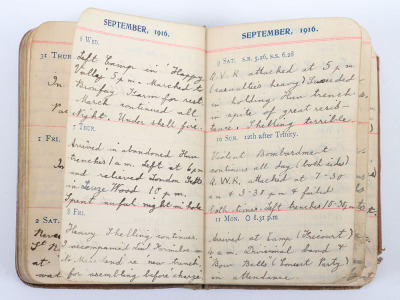 31 Thur
In
1 Fri
In
2 Sat
Never
St N
at
wad
SEPTEMBER, 1916.
6 Wed
Left Camp in "Happy
Valley" 5 p.m. Marched to
Bronfay Farm for rest
March continued all
Night. Under shell fire.
7 Thur
Arrived in abandoned Hun
trenches 1 a.m. Left at 6 pm
and relieved London
in Leuze Wood 10 p.m.
Spent awful night in hole
8 Fri
Heavy Shelling continues.
I accompanied
No Man's land re new trench
for assembling before charge
SEPTEMBER, 1916.
9 Sat. S.R. 5.26, S.S. 6.28
A.V.R. attacked at 5 pm
(casualties heavy) Succeeded
in holding Hun trench
in spite of great resist-
ance. Shelling terrible
10 Sun. 12th after Trinity.
Violent Bombardment
continues all day (both sides)
attacked at 7-30
an & 3-30 pm & failed
both times. Left trenches 10-30 pm
11 Mon. O 8.31 p.m.
Arrived at Camp (Fricourt)
4 a.m. Divisional Band &
Bow Bells (Concert Party)
in attendance